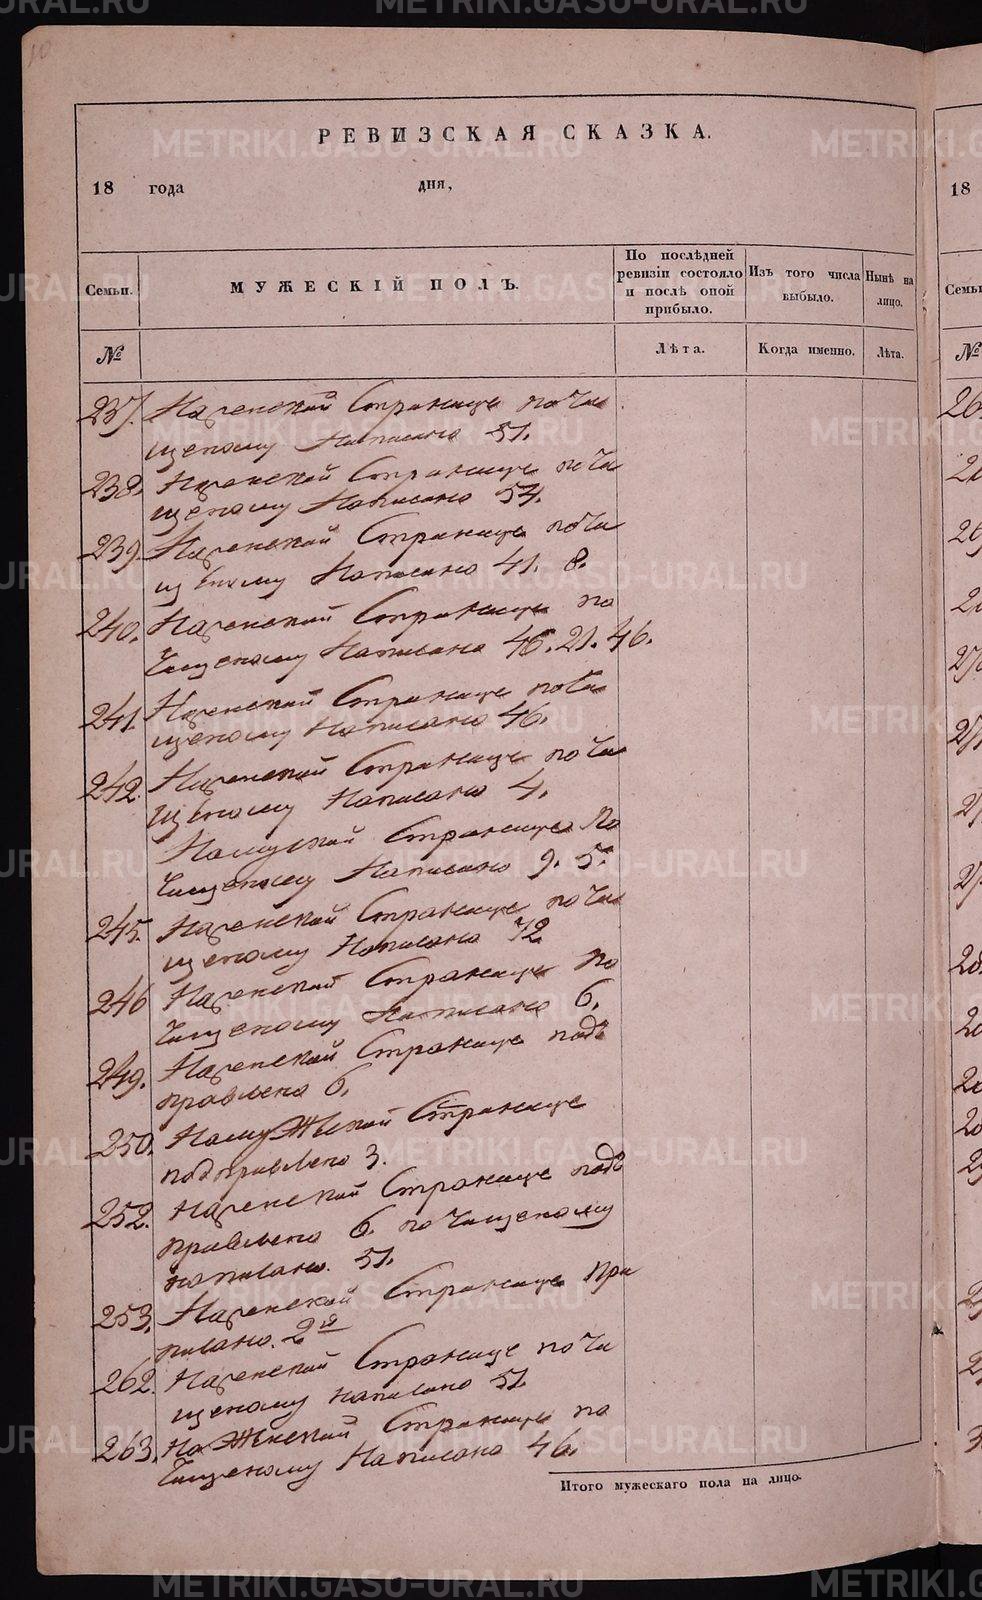 10
РЕВИЗСКАЯ СКАЗКА.
18 года дня,
Семьи. МУЖЕСКІЙ ПОЛЪ. По послѣдней ревизіи состояло и послѣ оной прибыло. Изъ того числа выбыло. Нынѣ на лицо.
№ Лѣта. Когда именно. Лѣта.
237. На женской странице по чи
щеному написано 51.
238. На женской странице по чи
щеному написано 54.
239. На женской странице по чи
щеному написано 41. 8.
240. На женской странице по
чищеному написано 46. 21. 46.
241. На женской странице по чи
щеному написано 46.
242. На женской странице по чи
щеному написано 4.
На мужской странице по
чищеному написано 9. 5.
245. На женской странице по чи
щеному написано 42.
246 На женской странице по
чищеному написано 6.
249. На женской странице подъ
правлено 6.
250. На мужской странице
подправлено 3.
252. На женской странице подъ
правлено 6. по чищеному
написано. 51.
253. На женской странице при
писано. 2й
262. На женской странице по чи
щеному написано 51.
263. На женской странице по
чищеному написано 46.
Итого мужескаго пола на лицо.
18
METRIKI.GASO-URAL.RU